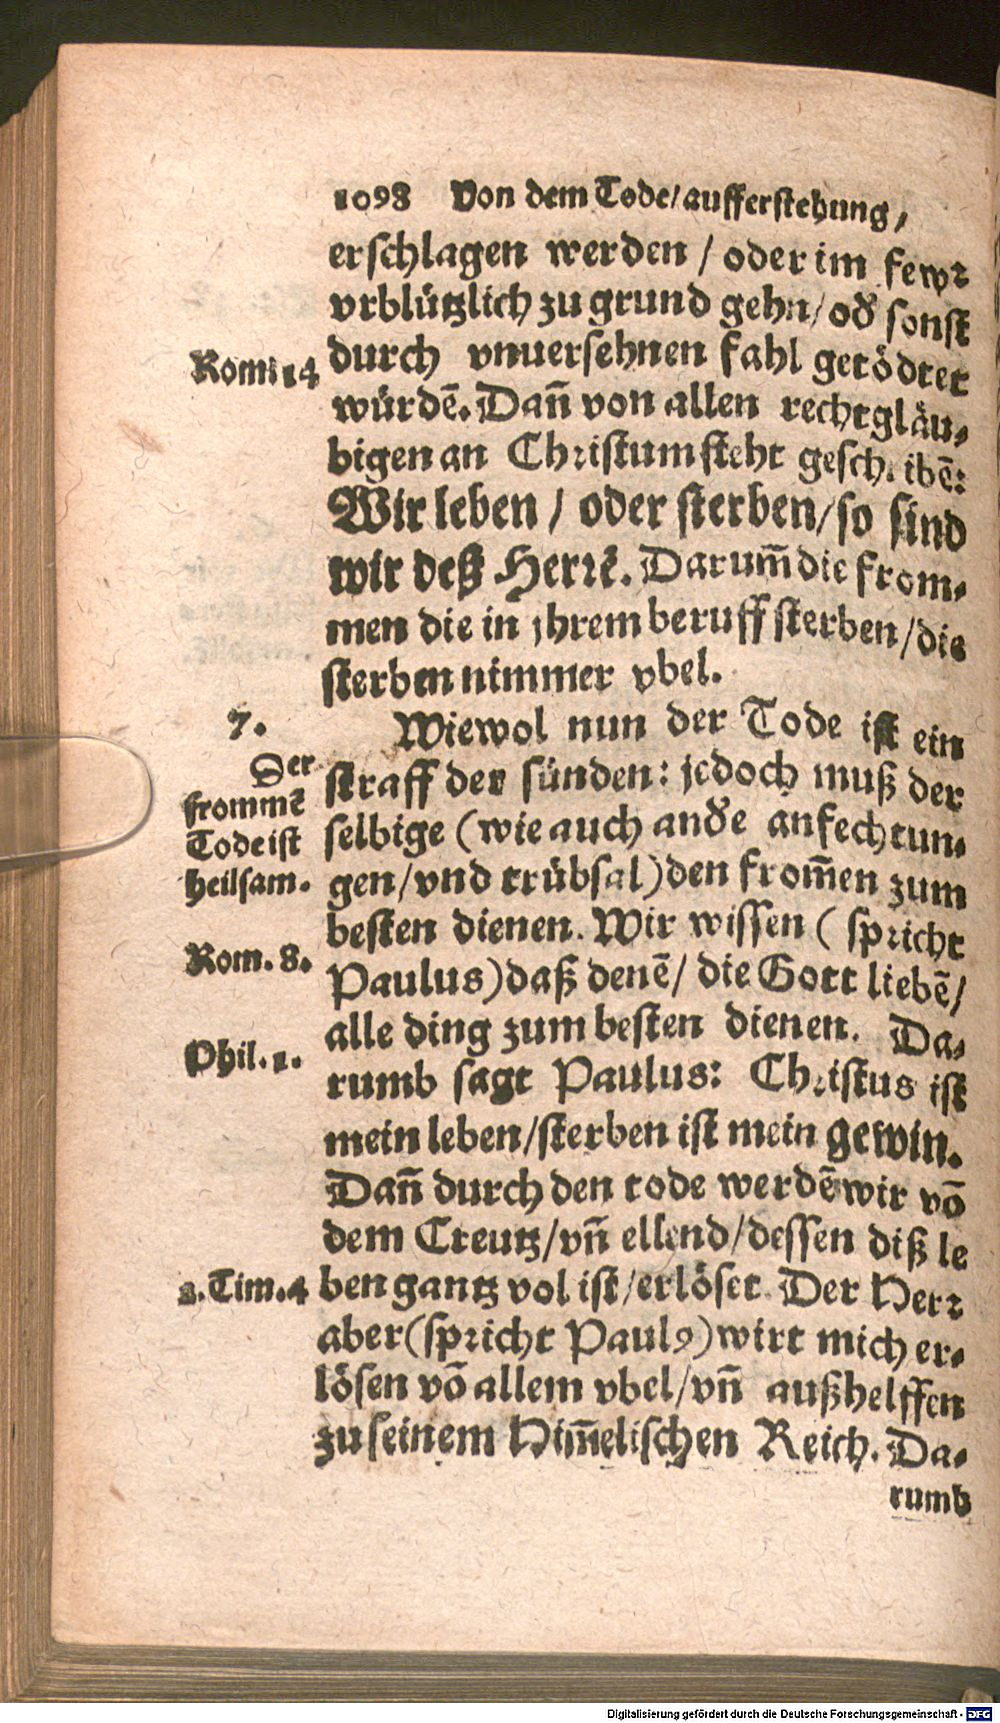 1098 Von dem Tode/aufferstehung,
erschlagen werden / oder im fewr
vrblützlich zu grund gehn/ oď sonst
Rom. 14
durch vnuersehnen fahl getödtet
würdē. Dañ von allen rechtgläu-
bigen an Christum steht geschribē:
Wir leben / oder sterben/so sind
wir deß Herrē. Darum̃ die from-
men die in jhrem beruff sterben/die
sterben nimmer vbel.
7.
Der
frommē
Tode ist
heilsam.
Wiewol nun der Tode ist ein
straff der sünden: jedoch muß der
selbige (wie auch anďe anfechtun-
gen/vnd trübsal) den from̃en zum
besten dienen. Wir wissen ( spricht
Rom. 8.
Paulus) daß denē/ die Gott liebē/
alle ding zum besten dienen. Da-
Phil. 1.
rumb sagt Paulus: Christus ist
mein leben/sterben ist mein gewin.
Dañ durch den tode werdē wir vō
dem Creutz/vñ ellend/dessen diß le
2. Tim. 4
ben gantz vol ist/erlöset. Der Herr
aber (spricht Paulꝰ) wirt mich er-
lösen vō allem vbel/vñ außhelffen
zu seinem Him̃elischen Reich. Da-
rumb
Digitalisierung gefördert durch die Deutsche Forschungsgemeinschaft - DFG